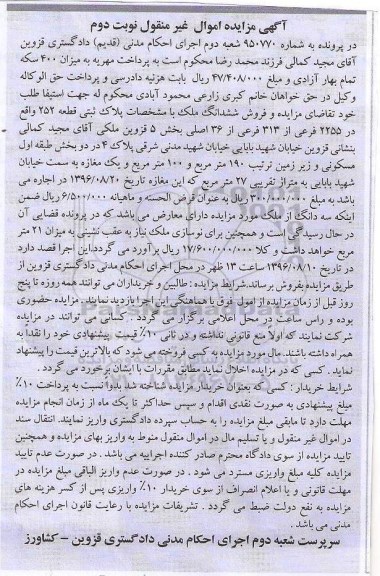 آگهی مزایده اموال غیر منقول نوبت دوم
در پرونده به شماره ۹۵۰۷۷۰ شعبه دوم اجرای احکام مدنی (قدیم) دادگستری قزوین
آقای مجید کمالی فرزند محمد رضا محکوم است به پرداخت مهریه به میزان ۴۰۰ سکه
تمام بهار آزادی و مبلغ ۴۷/۴۰۸/۰۰۰ ریال بابت هزینه دادرسی و پرداخت حق الوکاله
وکیل در حق خواهان خانم کبری زارعی محمود آبادی محکوم له جهت استیفا طلب
خود تقاضای مزایده و فروش ششدانگ ملک با مشخصات پلاک ثبتی قطعه ۲۵۲ واقع
در ۲۲۵۵ فرعی از ۳۱۳ فرعی از ۳۶ اصلی بخش ۵ قزوین ملکی آقای مجید کمالی
بنشانی قزوین خیابان شهید بابایی خیابان شهید مدنی شرقی پلاک ۴ در دو بخش طبقه اول
مسکونی و زیر زمین ترتیب ۱۹۰ متر مربع و ۱۰۰ متر مربع و یک مغازه به سمت خیابان
شهید بابایی به متراژ تقریبی ۲۷ متر مربع که این مغازه تاریخ ۱۳۹۶/۰۸/۲۰ در اجاره می
باشد به مبلغ ۳۰۰/۰۰۰/۰۰۰ ریال به عنوان قرض الحسنه و ماهیانه ۶/۵۰۰/۰۰۰ ریال ضمن
اینکه سه دانگ از ملک مورد مزایده دارای معارض می باشد که در پرونده قضایی آن
در حال رسیدگی است و همچنین برای نوسازی ملک نیاز به عقب نشینی به میزان ۲۱ متر
مربع خواهد داشت و کلا ۱۷/۶۰۰/۰۰۰/۰۰۰ ریال برآورد می گردد.این اجرا قصد دارد
در تاریخ ۱۳۹۶/۰۸/۱۰ ساعت ۱۳ ظهر در محل اجرای احکام مدنی دادگستری قزوین از
طریق مزایده بفروش برساند.شرایط مزایده : طالبین و خریداران می توانند همه روزه تا پنج
روز قبل از زمان مزایده از اموال فوق با هماهنگی این اجرا بازدید نمایند . مزایده حضوری
بوده و راس ساعت در محل اعلامی برگزار می گردد . کسانی می توانند در مزایده
شرکت نمایند که اولاً منع قانونی نداشته و در ثانی ۱۰٪ قیمت پیشنهادی خود را نقدا به
همراه داشته باشند. مال مورد مزایده به کسی فروخته می شود که بالاترین قیمت را پیشنهاد
نماید . کسی که در مزایده اخلال نماید مطابق مقررات با ایشان برخورد می گردد .
شرایط خریدار : کسی که بعنوان خریدار مزایده شناخته شد بدواً نسبت به پرداخت ۱۰٪
مبلغ پیشنهادی به صورت نقدی اقدام و سپس حداکثر تا یک ماه از زمان انجام مزایده
مهلت دارد تا مابقی مبلغ مزایده را به حساب سپرده دادگستری واریز نمایند. انتقال سند
در اموال غیر منقول و یا تسلیم مال در اموال منقول منوط به واریز بهای مزایده و همچنین
تایید مزایده از سوی دادگاه محترم صادر کننده اجراییه می باشد . در صورت عدم تایید
مزایده کلیه مبلغ واریزی مسترد می شود . در صورت عدم واریز الباقی مبلغ مزایده در
مهلت قانونی و یا اعلام انصراف از سوی خریدار ۱۰٪ واریزی پس از کسر هزینه های
مزایده به نفع دولت ضبط می گردد . تشریفات مزایده با رعایت قانون اجرای احکام
مدنی می باشد .
سرپرست شعبه دوم اجرای احکام مدنی دادگستری قزوین – کشاورز